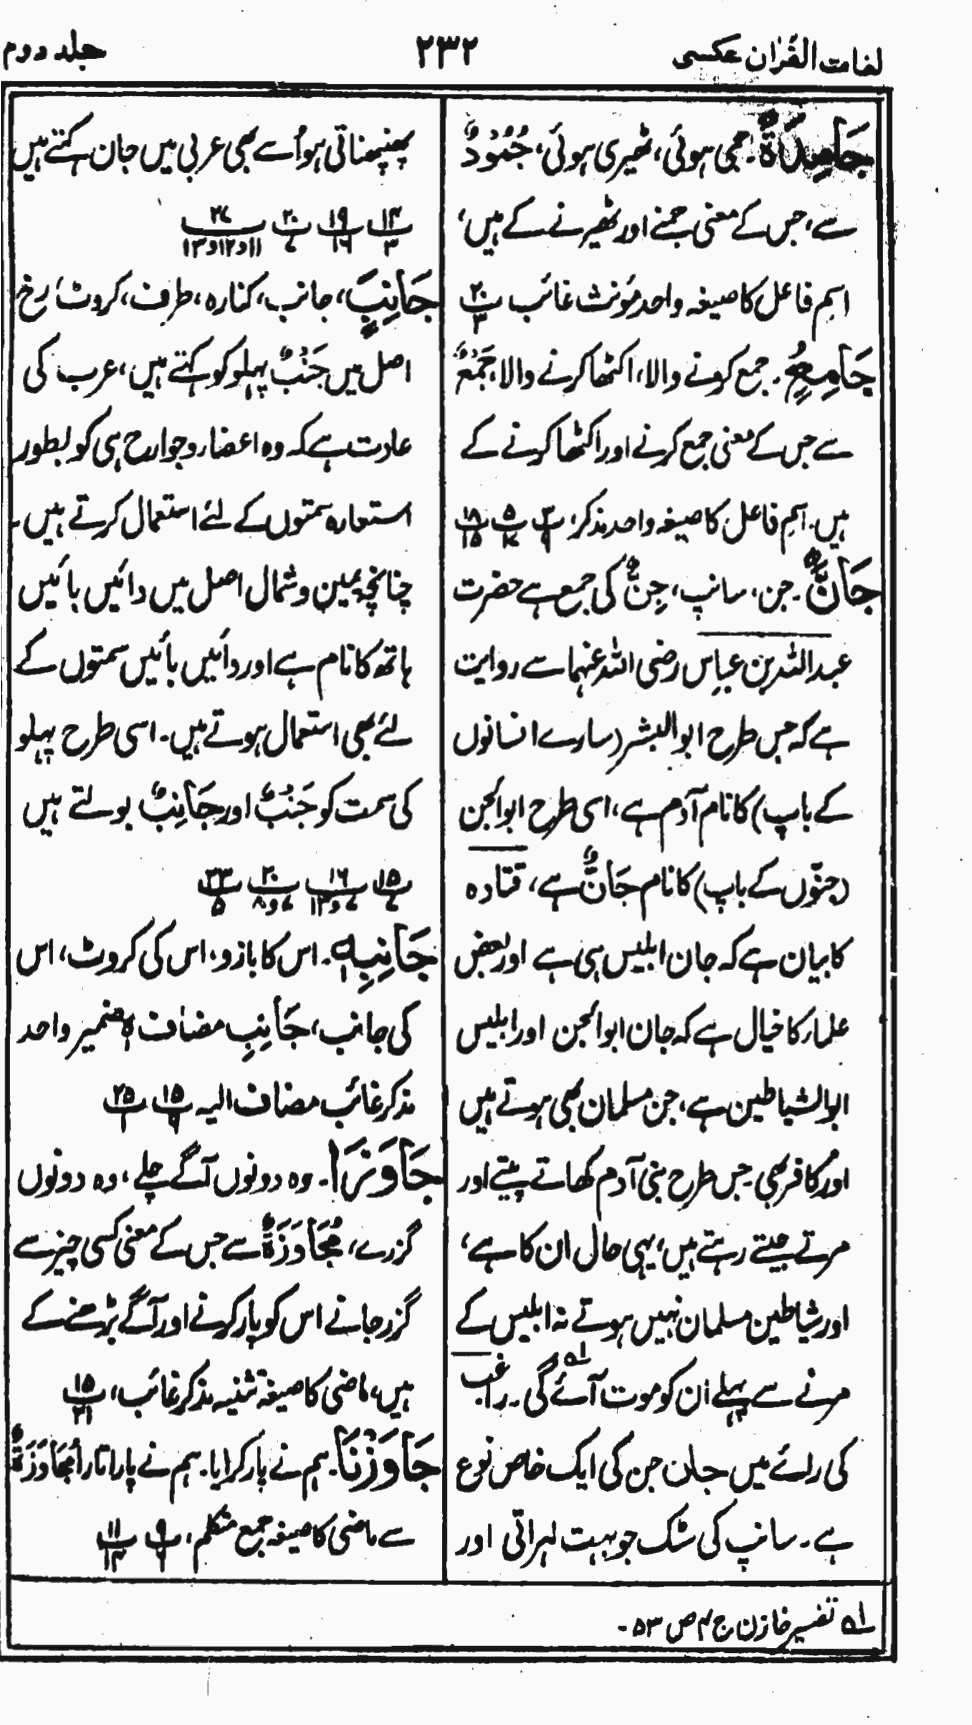 لغات القُران عکسی
۲۳۲
جلد دوم
جَامِدَةٌ۔ جمی ہوئی، ٹھیری ہوئی، جُمُودٌ
سے، جس کے معنی جمنے اور ٹھیرنے کے ہیں،
اسمِ فاعل کا صیغہ واحد مؤنث غائب ۲۰ب۳
جَامِعٌ۔ جمع کرنے والا، اکٹھا کرنے والا، جَمْعٌ
سے جس کے معنی جمع کرنے اور اکٹھا کرنے کے
ہیں۔ اسمِ فاعل کا صیغہ واحد مذکر، ۳ب۹ ۵ب۱۷ ۱۸ب۱۵
جَانٌّ۔ جن، سانپ، جِنٌّ کی جمع ہے حضرت
عبداللہ بن عباس رضی اللہ عنہما سے روایت
ہے کہ جس طرح ابو البشر (سارے انسانوں
کے باپ) کا نام آدم ہے، اسی طرح ابوالجن
(جنّوں کے باپ) کا نام جَانٌّ ہے، قتادہ
کا بیان ہے کہ جان ابلیس ہی ہے اور بعض
علماء کا خیال ہے کہ جان ابو الجن اور ابلیس
ابوالشیاطین ہے، جن مسلمان بھی ہوتے ہیں
اور کافر بھی۔ جس طرح بنی آدم کھاتے پیتے اور
مرتے جیتے رہتے ہیں، یہی حال ان کا ہے،
اور شیاطین مسلمان نہیں ہوتے نہ ابلیس کے
مرنے سے پہلے ان کو موت آئے گی۔ ؎۱ راغب
کی رائے میں جان جن کی ایک خاص نوع
ہے۔ سانپ کی شک جو بہت لہراتی اور
پھنپھناتی ہو اُسے بھی عربی میں جان کہتے ہیں
۱۴ب۳ ۱۹ب۱۶ ۲۰ب۷ ۲۷ب۱۱و۱۲و۱۳
جَانِبٍ، جانب، کنارہ، طرف، کروٹ، رخ،
اصل میں جَنْبٌ پہلو کو کہتے ہیں، عرب کی
عادت ہے کہ وہ اعضاء و جوارح ہی کو بطور
استعارہ سمتوں کے لئے استعمال کرتے ہیں۔
چنانچہ یمین و شمال اصل میں دائیں بائیں
ہاتھ کا نام ہے اور دائیں بائیں سمتوں کے
لئے بھی استعمال ہوتے ہیں۔ اسی طرح پہلو
کی سمت کو جَنْبٌ اور جَانِبٌ بولتے ہیں
۱۵ب۷ ۱۶ب۷و۱۳ ۲۰ب۷و۸ ۲۳ب۵
جَانِبِهٖ۔ اس کا بازو، اس کی کروٹ، اس
کی جانب، جَانِبِ مضاف ہٖ ضمیر واحد
مذکر غائب مضاف الیہ ۱۵ب۹ ۲۵ب۱
جَاوَزَا۔ وہ دونوں آگے چلے، وہ دونوں
گزرے، مُجَاوَزَةٌ سے جس کے معنی کسی چیز سے
گزر جانے اس کو پار کرنے اور آگے بڑھنے کے
ہیں، ماضی کا صیغہ تثنیہ مذکر غائب، ۱۵ب۲۱
جَاوَزْنَا۔ ہم نے پار کرایا۔ ہم نے پار اتارا مُجَاوَزَةٌ
سے ماضی کا صیغہ جمع متکلم، ۹ب۶ ۱۱ب۱۴
؎۱ تفسیر خازن ج ۴ ص ۵۳۔